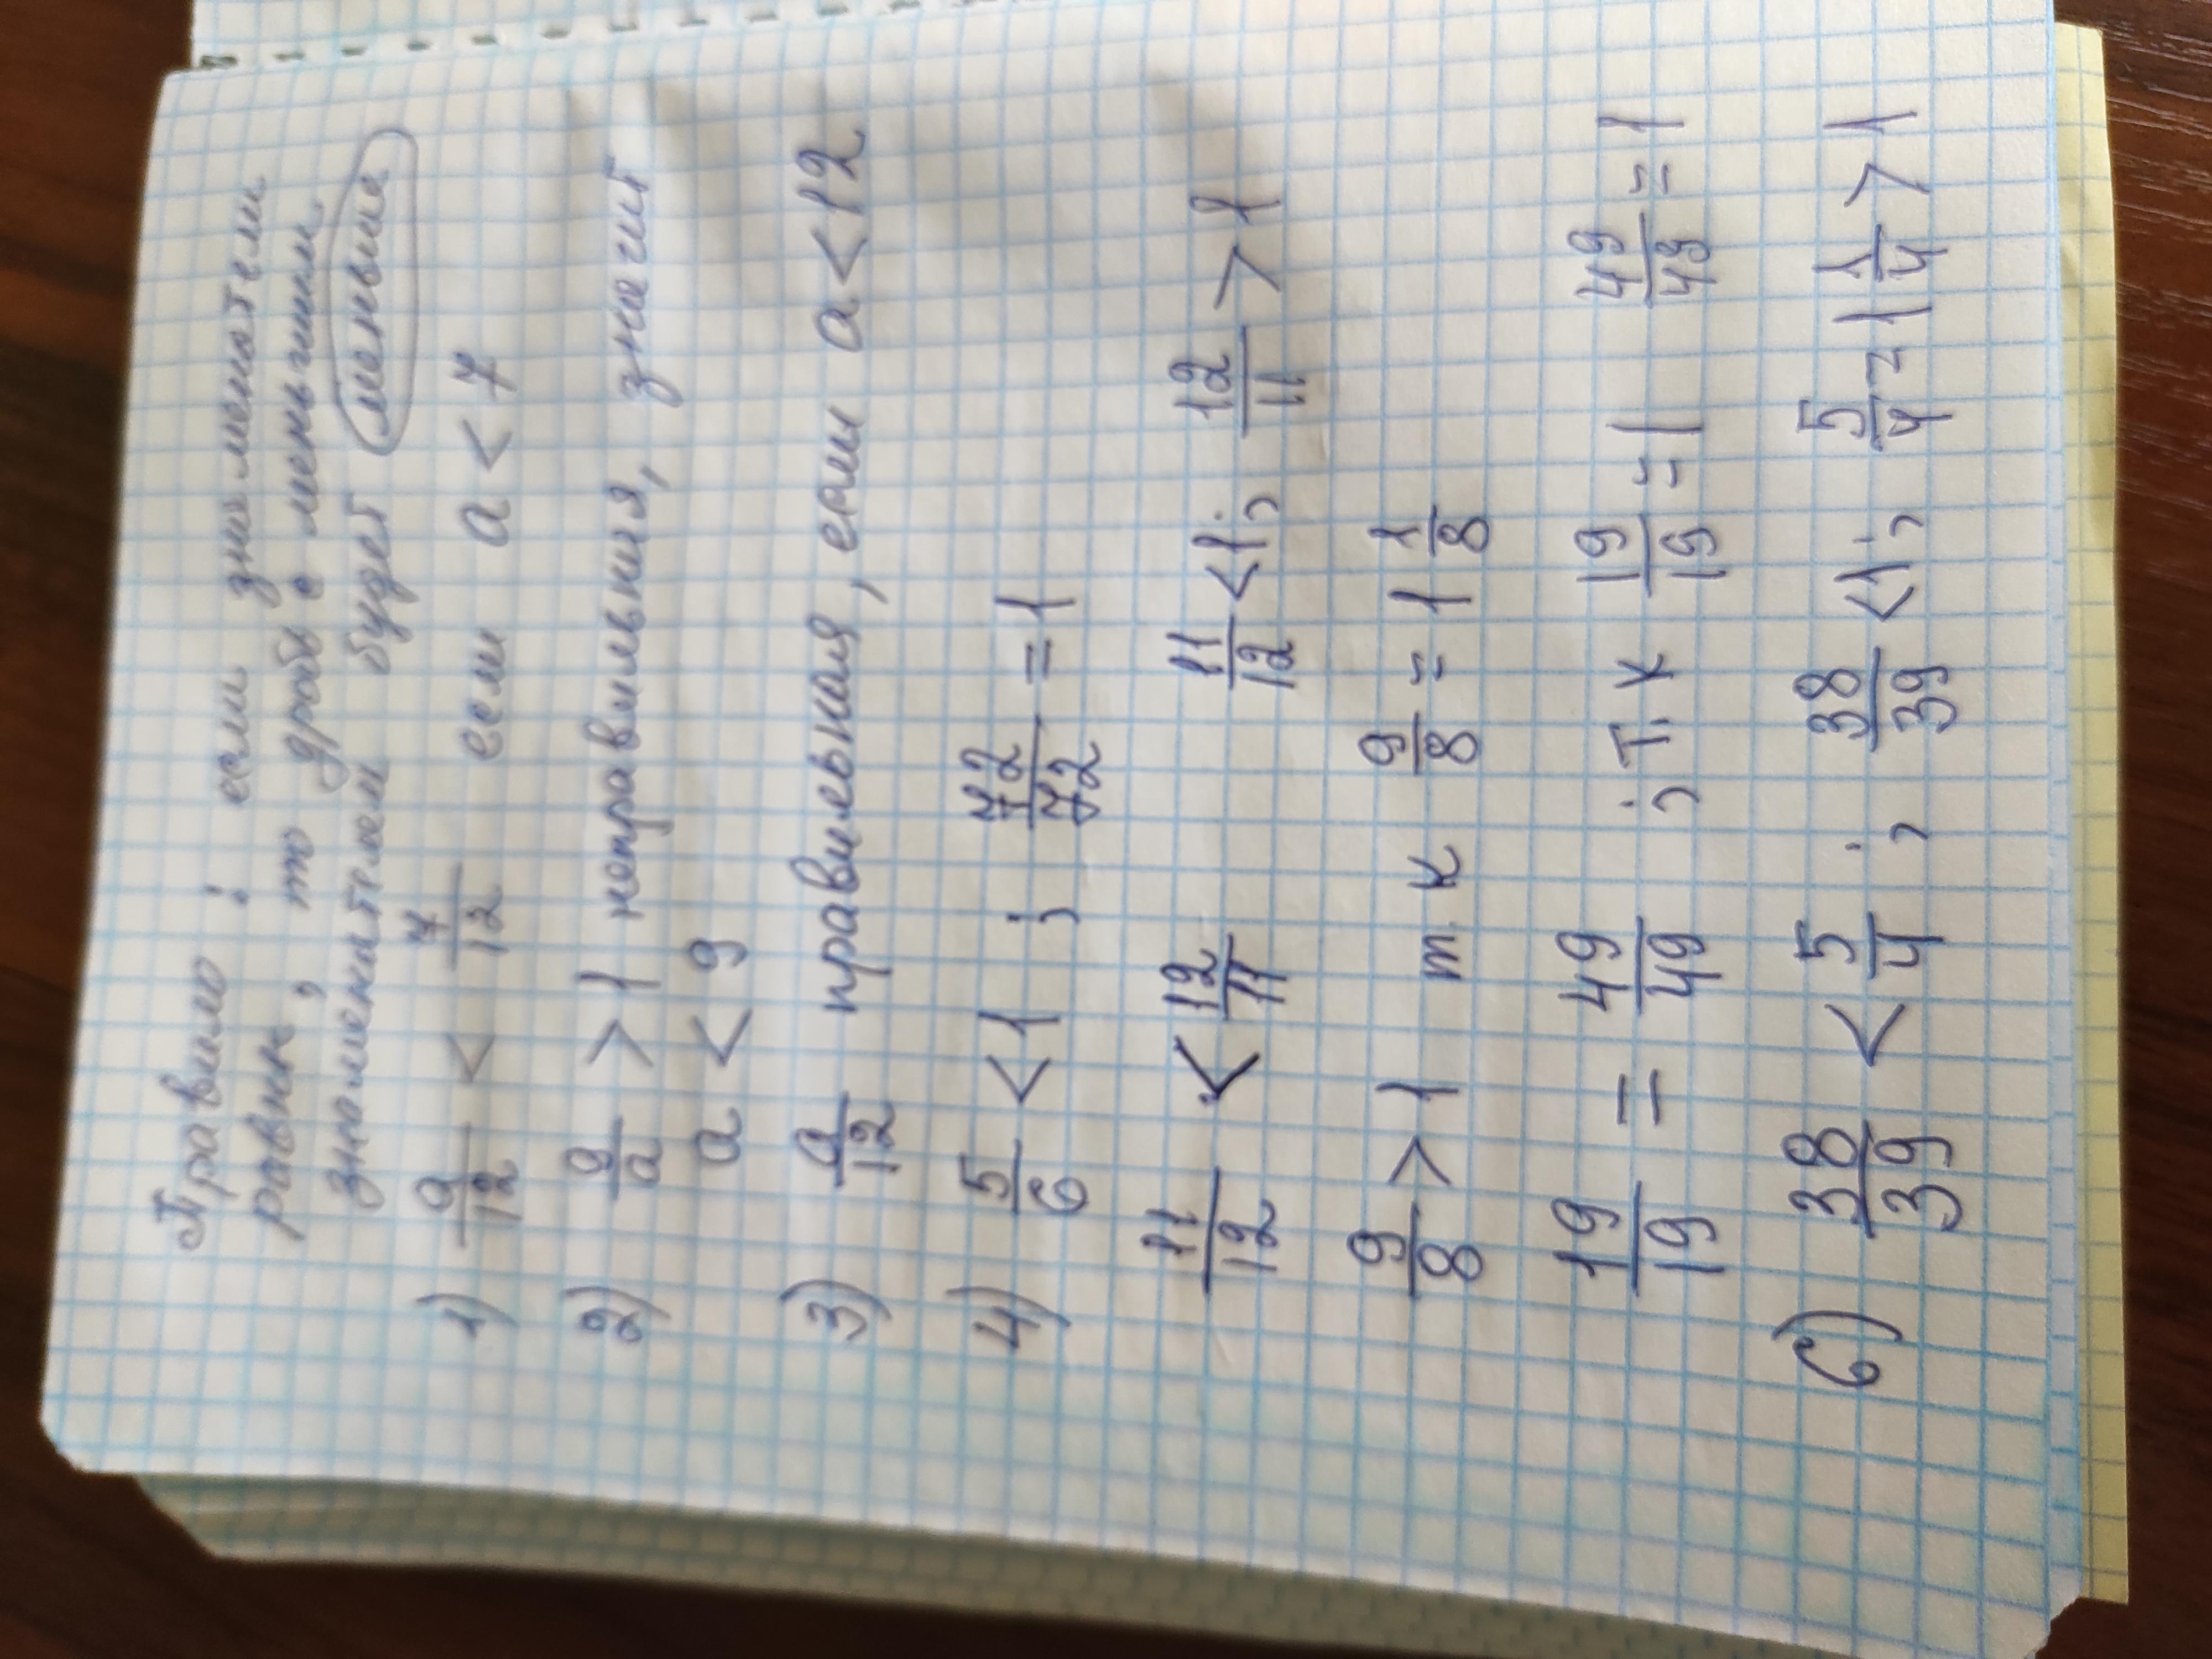 Правило : если знаменатели
равны, то дробь с меньшим
знаменателем будет меньшие
1) a/12 < 7/12 если a < 7
2) 9/a > 1 неправильная, значит
a < 9
3) a/12 правильная, если a < 12
4) 5/6 < 1 ; 72/72 = 1
11/12 < 12/11 11/12 < 1; 12/11 > 1
9/8 > 1 т к 9/8 = 1 1/8
19/19 = 49/49 ; т.к 19/19 = 1 49/49 = 1
6) 38/39 < 5/4 ; 38/39 < 1; 5/4 = 1 1/4 > 1